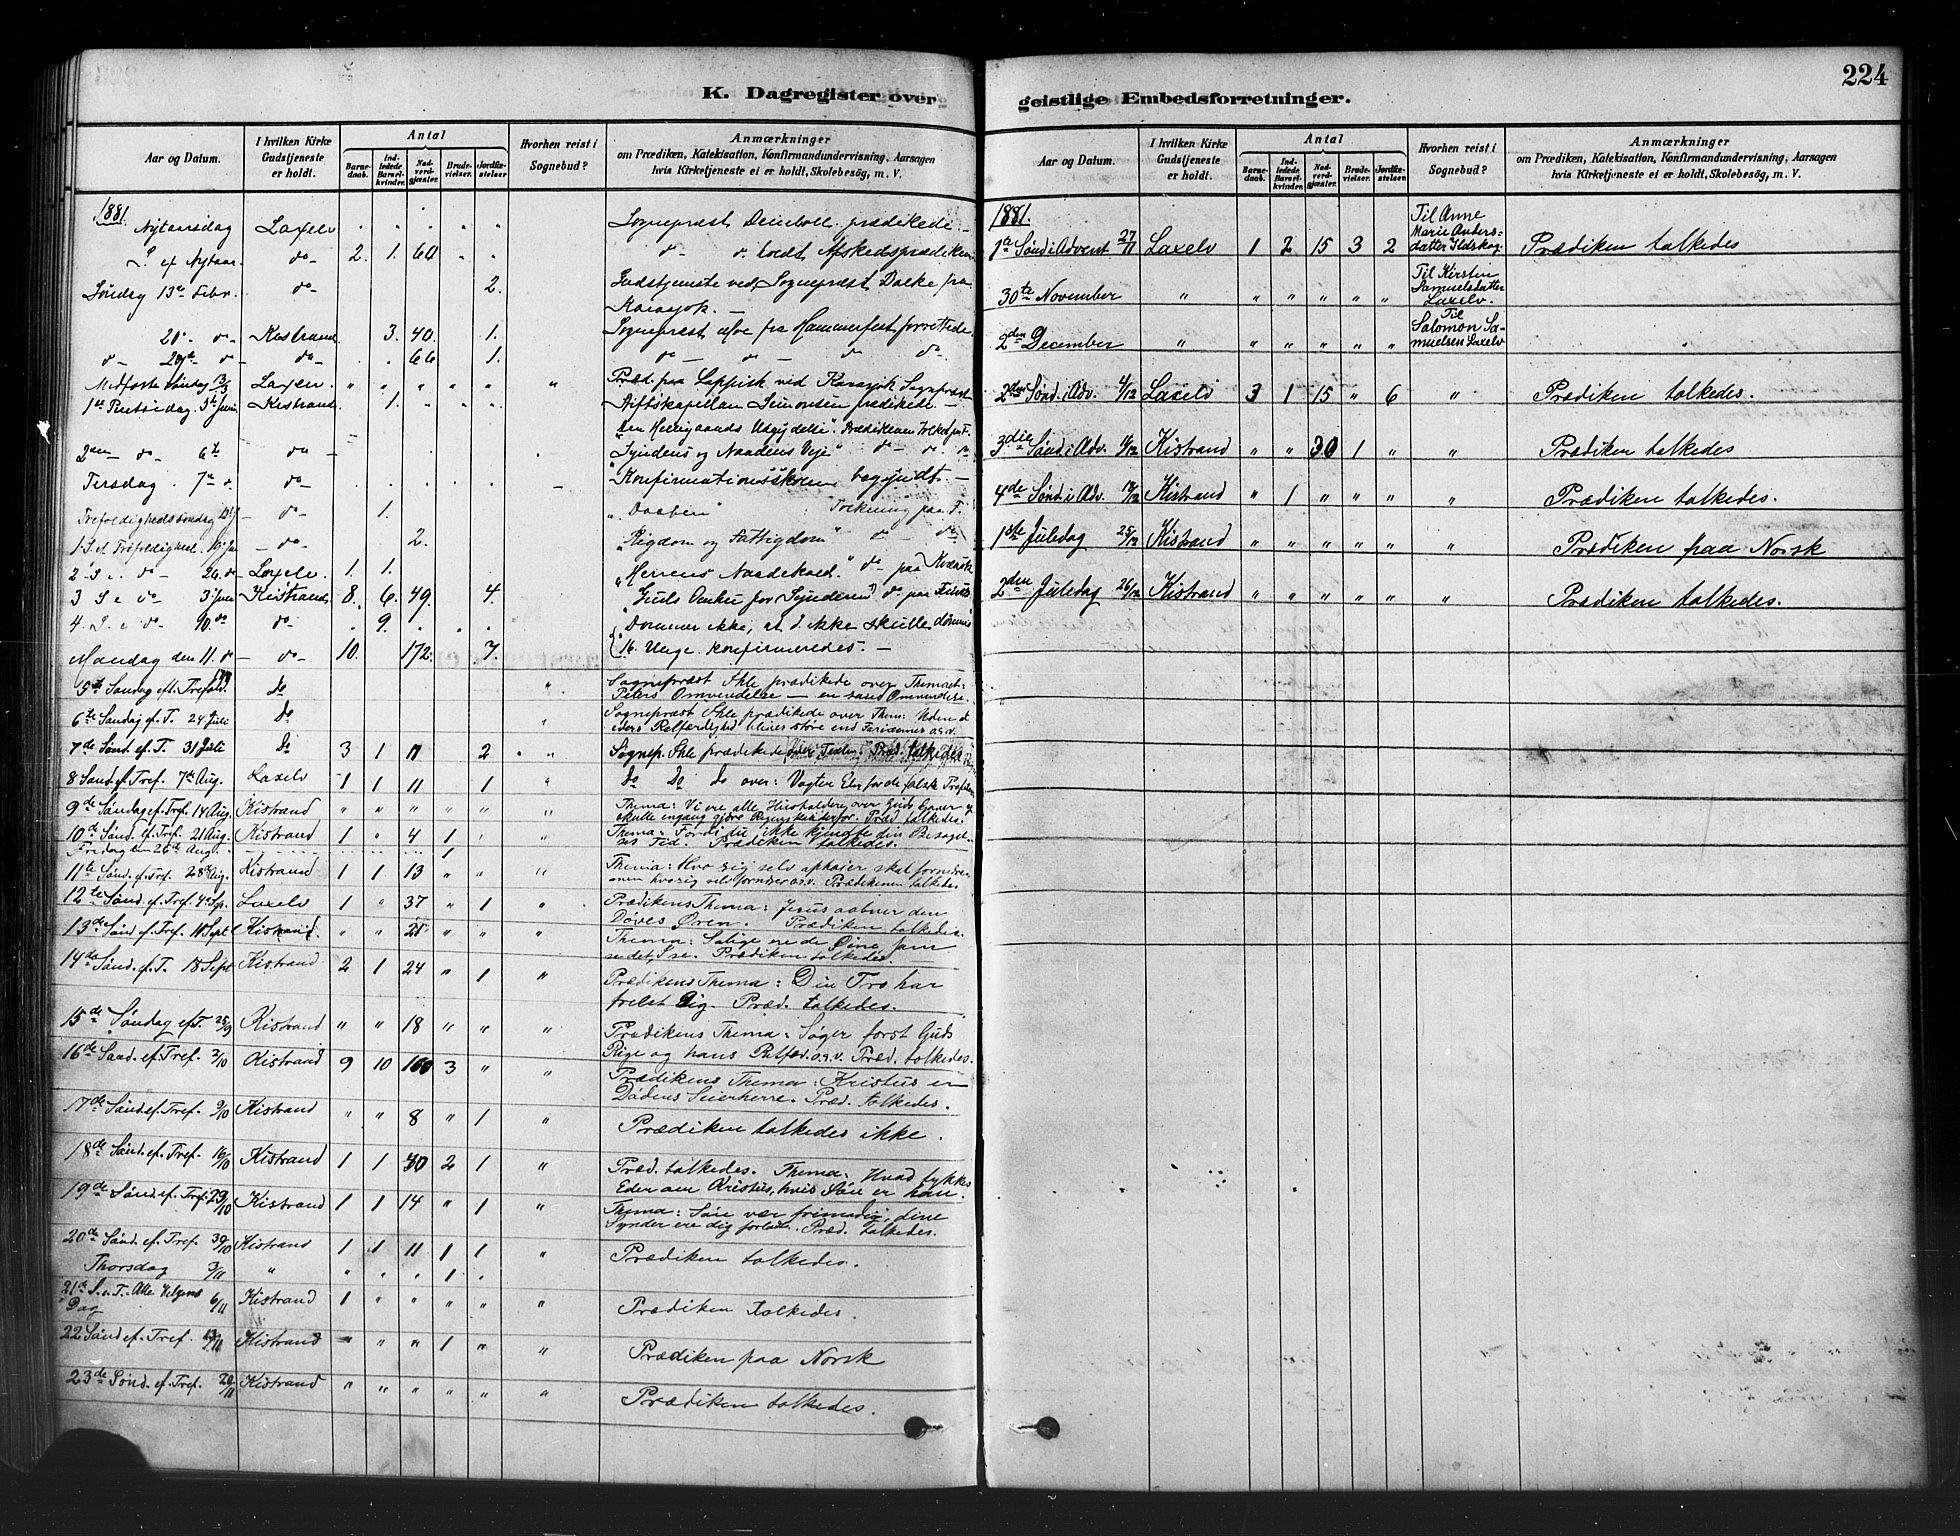 224
K. Dagregister over geistlige Embedsforretninger.
Aar og Datum. | I hvilken Kirke Gudstjeneste er holdt. | Antal | Barnedaab. | Indledede Barselkvinder. | Nadverdgjæster. | Brudevielser. | Jordfæstelser | Hvorhen reist i Sognebud? | Anmærkninger om Prædiken, Katekisation, Konfirmandundervisning, Aarsagen hvis Kirketjeneste ei er holdt, Skolebesøg, m. V.
1881.
Nytaarsdag | Laxelv | Sognepræst Deinboll prædikede
S. ef Nytaar. | do | 2. | 1. | 60 | do holdt Afskedsprædiken
Søndag 13de Febr. | do | 2. | Gudstjeneste ved Sognepræst Balke fra
Karasjok.
20de do | Kistrand | 3. | 40. | 1. | Sognepræst fra Hammerfest forrettede
do 27de do | do | 66 | 1. | do do do do
Midfaste Søndag | Laxelv | " | " | " | " | " | Præd. paa Lappisk ved Karasjok Sognepræst
1ste Pintsedag 5te Juni | Kistrand | 1. | Stiftskapellan Simonsen prædikede
"Den Helligaands Udgydelse". Prædikenen tolkedes
2den do 6te | do | "Syndens og Naadens Veje" do
Tirsdag 7de do | do | Konfirmationsskolen begyndt.
Trefoldighedssøndag | do | 1. | "Daaben" Tolkning paa F.
1. S. ef Trefoldighed. 19 Juni | do | 2. | "Rigdom og Fattigdom" do do
2 S e do 26. do | Laxelv | 1. | 1. | "Herrens Naadekald." do paa Kvænsk
3 S e do 3 Juli | Kistrand | 8. | 6. | 49. | 4. | "Guds Omhu for Synderen" do paa Finsk
4. S. e do 10. do | do | 9. | "Dømmer ikke, at I ikke skulle dømmes"
Mandag den 11. do | do | 10. | 172. | 7. | 16 Unge konfirmeredes.
5te Søndag eft. Trefold. | Do | " | Sognepræst Ihle prædikede over Themaet:
Peters Omvendelse — en sand Omvendelse.
6te Søndag ef. T. 24 Juli | Do | " | Sognepræst Ihle prædikede over Them: Uden at
eders Retfærdighed bliver større end Farisæernes o.s.v.
7de Sønd. ef. T. 31 Juli | Do | 3 | 1 | 11 | 2 | " | Sognep. Ihle prædikede over Texten. Præd. tolkedes
8 Sønd. ef. Tref. 7de Aug. | Laxelv | 1 | 1 | 11 | 1 | " | Do Do do over: Vogter Eder for de falske Profeter
9de Søndag ef. Tref. 14 Aug. | Kistrand | " | " | " | " | " | " | Thema: Vi ere alle Husholdere over Guds Gaver og
skulle engang gjøre Regnskab derfor. Præd. tolkedes.
10de Sønd. ef. Tref. 21 Aug. | Kistrand | 1 | " | 4 | 1 | " | " | Thema: Fordi du ikke kjendte din Besøgel-
ses Tid. Prædiken tolkedes.
Fredag den 26de Aug. | 1
11te Sønd. ef. Tref. 28 Aug. | Kistrand | 1 | 1 | 13 | " | " | " | Thema: Hvo sig selv ophøier skal fornedres
men hvo sig selv fornedrer o.s.v. Prædikenen tolkedes
12te Sønd. ef. Tref. 4 Sep. | Laxelv | 1 | " | 37 | " | 1 | " | Prædikens Thema: Jesus aabner den
Døves Øren. Prædiken tolkedes.
13de Sønd. ef. Tref. 11 Sept | Kistrand. | " | " | 28 | " | " | " | Thema: Salige ere de Øine som
se det, I se. Prædiken tolkedes.
14de Sønd. ef. T. 18 Sept | Kistrand | 2 | 1 | 24 | " | 1 | " | Prædikens Thema: Din Tro har
frelst Dig. Præd. tolkedes.
15de Søndag ef. T. 25/9 | Kistrand | " | " | 18 | " | " | " | Prædikens Thema: Søger først Guds
Rige og hans Retfærd. o.s.v. Præd. tolkedes.
16de Sønd. ef. Tref. 2/10 | Kistrand | 9 | 10 | 100 | 3 | " | " | Prædikens Thema: Kristus er
Dødens Seierherre. Præd. tolkedes.
17de Sønd. ef. Tref. 9/10 | Kistrand | " | " | 8 | " | 1 | " | Prædiken tolkedes ikke.
18de Sønd. ef. Tref. 16/10 | Kistrand | 1 | 1 | 30 | 2 | 1 | " | Præd. tolkedes. Thema: Hvad tykkes
Eder om Kristus, hvis Søn er han.
19de Sønd. ef. Tref. 23/10 | Kistrand | 1 | 1 | 14 | " | 1 | " | Thema: Søn vær frimodig, dine
Synder ere dig forladte. Præd. tolkedes.
20de Sønd. ef. Tref. 30/10 | Kistrand | 1 | 1 | 11 | 1 | 1 | " | Prædiken tolkedes.
Thorsdag 3/11 | " | " | " | " | 1 | "
21de S. e. T. Alle Helgens Dag 6/11 | Kistrand | 1 | " | " | " | " | " | Prædiken tolkedes
22 Sønd ef. Tref. 13/11 | Kistrand | " | " | " | 1 | " | " | Prædiken paa Norsk
23de Sønd. ef. Tref. 20/11 | Kistrand | " | " | " | " | " | " | Prædiken tolkedes.
Aar og Datum. | I hvilken Kirke Gudstjeneste er holdt. | Antal | Barnedaab. | Indledede Barselkvinder. | Nadverdgjæster. | Brudevielser. | Jordfæstelser. | Hvorhen reist i Sognebud? | Anmærkninger om Prædiken, Katekisation, Konfirmandundervisning, Aarsagen hvis Kirketjeneste ei er holdt, Skolebesøg, m. V.
1881.
1ste Sønd i Advent 27/11 | Laxelv | 1 | 2 | 15 | 3 | 2 | Til Anne Marie Andersdatter Ildskog | Prædiken tolkedes
30te November | " | " | " | " | " | " | Til Kirsten Samuelsdatter Laxelv.
2den December | " | " | " | " | " | " | Til Salomon Samuelsen Laxelv
2den Sønd. i Adv. 4/12 | Laxelv | 3 | 1 | 15 | " | 6 | " | Prædiken tolkedes.
3die Sønd i Adv. 11/12 | Kistrand | " | " | 30 | 1 | " | " | Prædiken tolkedes
4de Sønd i Adv. 18/12 | Kistrand | " | 1 | " | " | " | " | Prædiken tolkedes.
1ste Juledag 25/12 | Kistrand | " | " | " | " | " | " | Prædiken paa Norsk
2den Juledag 26/12 | Kistrand | " | " | " | " | " | " | Prædiken tolkedes.